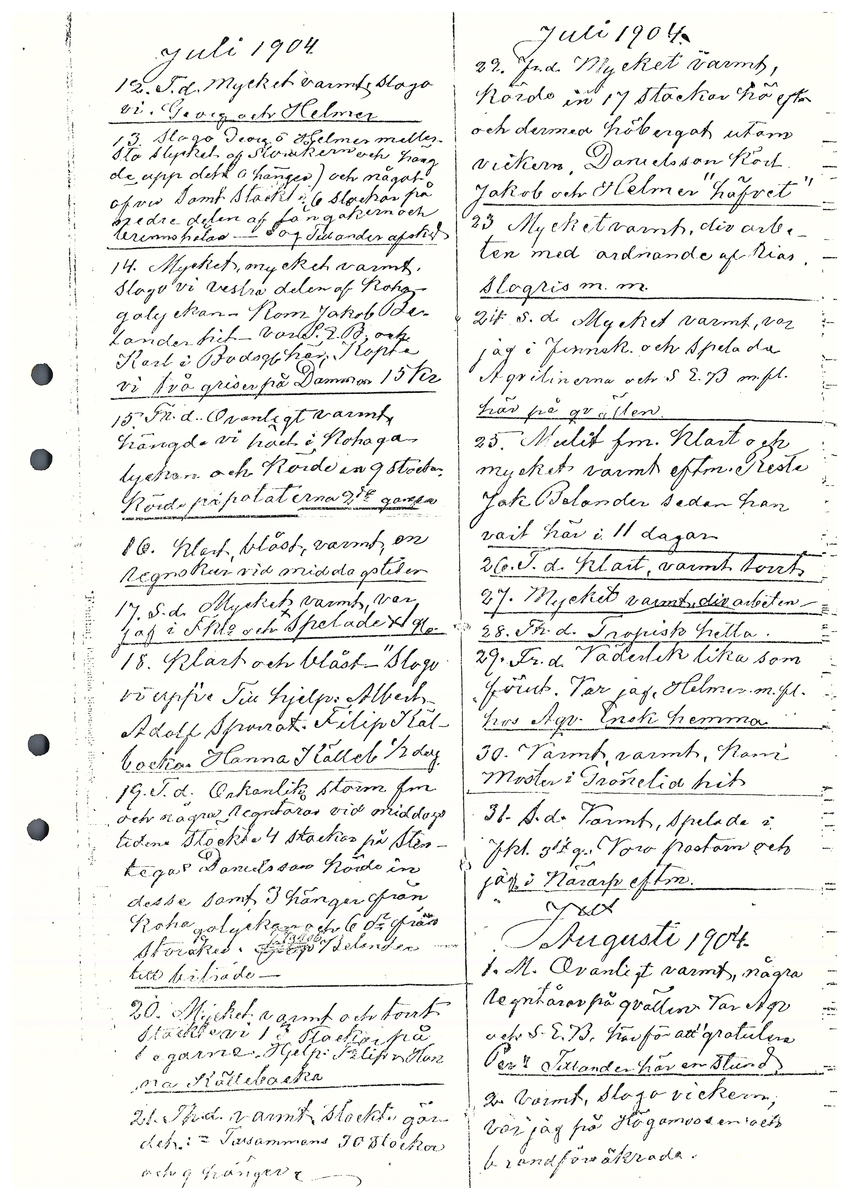 Juli 1904
12. T.d. Mycket varmt, slogo
vi. Georg och Helmer
13. Slogo Georg o Helmer mellersta
stycket af Storåkern och häng
de upp dett (6 hänger) och något
af vic samt stackt 6 stackar på
nedre delen af långåkern och
14. Mycket, mycket varmt.
Slogo vi vestra delen af Koha-
galyckan - Kom Jakob Be-
lander hit - voro S.E.B. och
Karl i Bodsgb här, Köpte
vi två griser på Dammen 15 Kr
15. Fr.d. Ovanligt varmt,
hängde vi höet i Kohaga
lyckan och Körde in 9 stackar
Körde på potaterna 2dra gången
16. Klart, blåst, varmt, en
regnskur vid middagstiden
17. S.d. Mycket varmt, var
jag i Fkl. och spelade
18. Klart och blåst - "Slogo
vi upp" Till hjelp: Albert
Adolf Sporrat. Filip Käl-
lebacka. Hanna Källeb 1/2 dag
19. T.d. Orkanlik storm fm
och några regntårar vid middags
tiden stackte 4 stackar på Sten-
tegar Danielsson körde in
desse samt 3 hänger från
Kohagalyckan och 6 dr från
Storåker. Belander
till biträde -
20. Mycket varmt och torrt
stackte vi 13 stackar på
tegarne. Hjelp: Filip o Han
na Källebacka
21. Th.d. varmt, stackte går
deh. := Tillsammans 30 stackar
och 9 hänger
Juli 1904.
22. Fr.d. Mycket varmt,
Körde in 17 stackar hö efter
och dermed höbergat utom
vickern, Danielsson Kört.
Jakob och Helmer "häfvet"
23 Mycket varmt, div arbe-
ten med ordnande af Rias,
slogris m. m.
24 S.d. Mycket varmt, var
jag i Finnsk. och spelade
Agvilinerna och S E.B m.fl.
här på qvällen.
25. Mulit fm. Klart och
mycket varmt eftm. Reste
Jak Belander sedan han
vait här i 11 dagar
26. T.d. Klart, varmt torrt
27. Mycket varmt, div arbeten -
28. Th.d. Tropisk hetta.
29. Fr.d. Väderlek lika som
förut. Var jag, Helmer m.fl.
hos Agv. Ensk hemma
30. Varmt, varmt, Kom
Moster i Trönelid hit
31. S.d. Varmt, spelade i
Fkl. 3dje g. Voro pastorn och
jag i Närarp eftm.
Augusti 1904.
1. M. Ovanligt varmt, några
regntårar på qvällen. Var Agv
och S.E.B. här för att gratulera
Per: Tillander här en stund
2. varmt, slogo vickern,
var jag på Högamosen och
brandförsäkrade.